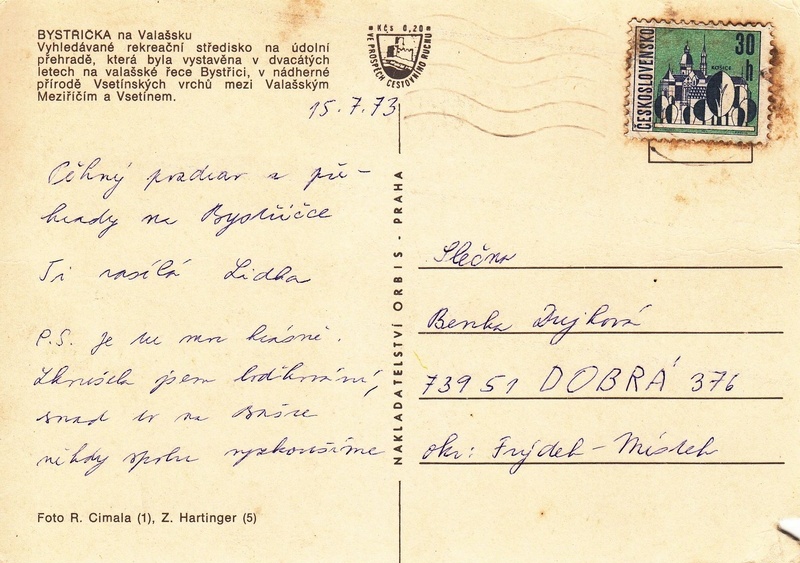 BYSTRIČKA na Valašsku
Vyhledávané rekreační středisko na údolní
přehradě, která byla vystavěna v dvacátých
letech na valašské řece Bystřici, v nádherné
přírodě Vsetínských vrchů mezi Valašským
Meziříčím a Vsetínem.
Kčs 0,20
VE PROSPĚCH CESTOVNÍHO RUCHU
ČESKOSLOVENSKO
30 h
KOŠICE
15.7.73
pozdrav z pře-
hrady na Bystřičce
Ti zasílá Lidka
P.S. Je tu moc krásně.
Zkusila jsem loďkování,
snad to na Bašce
někdy spolu vyzkoušíme
NAKLADATELSTVÍ ORBIS - PRAHA
Slečna
Benka
739 51 DOBRÁ 376
okr: Frýdek-Místek
Foto R. Cimala (1), Z. Hartinger (5)